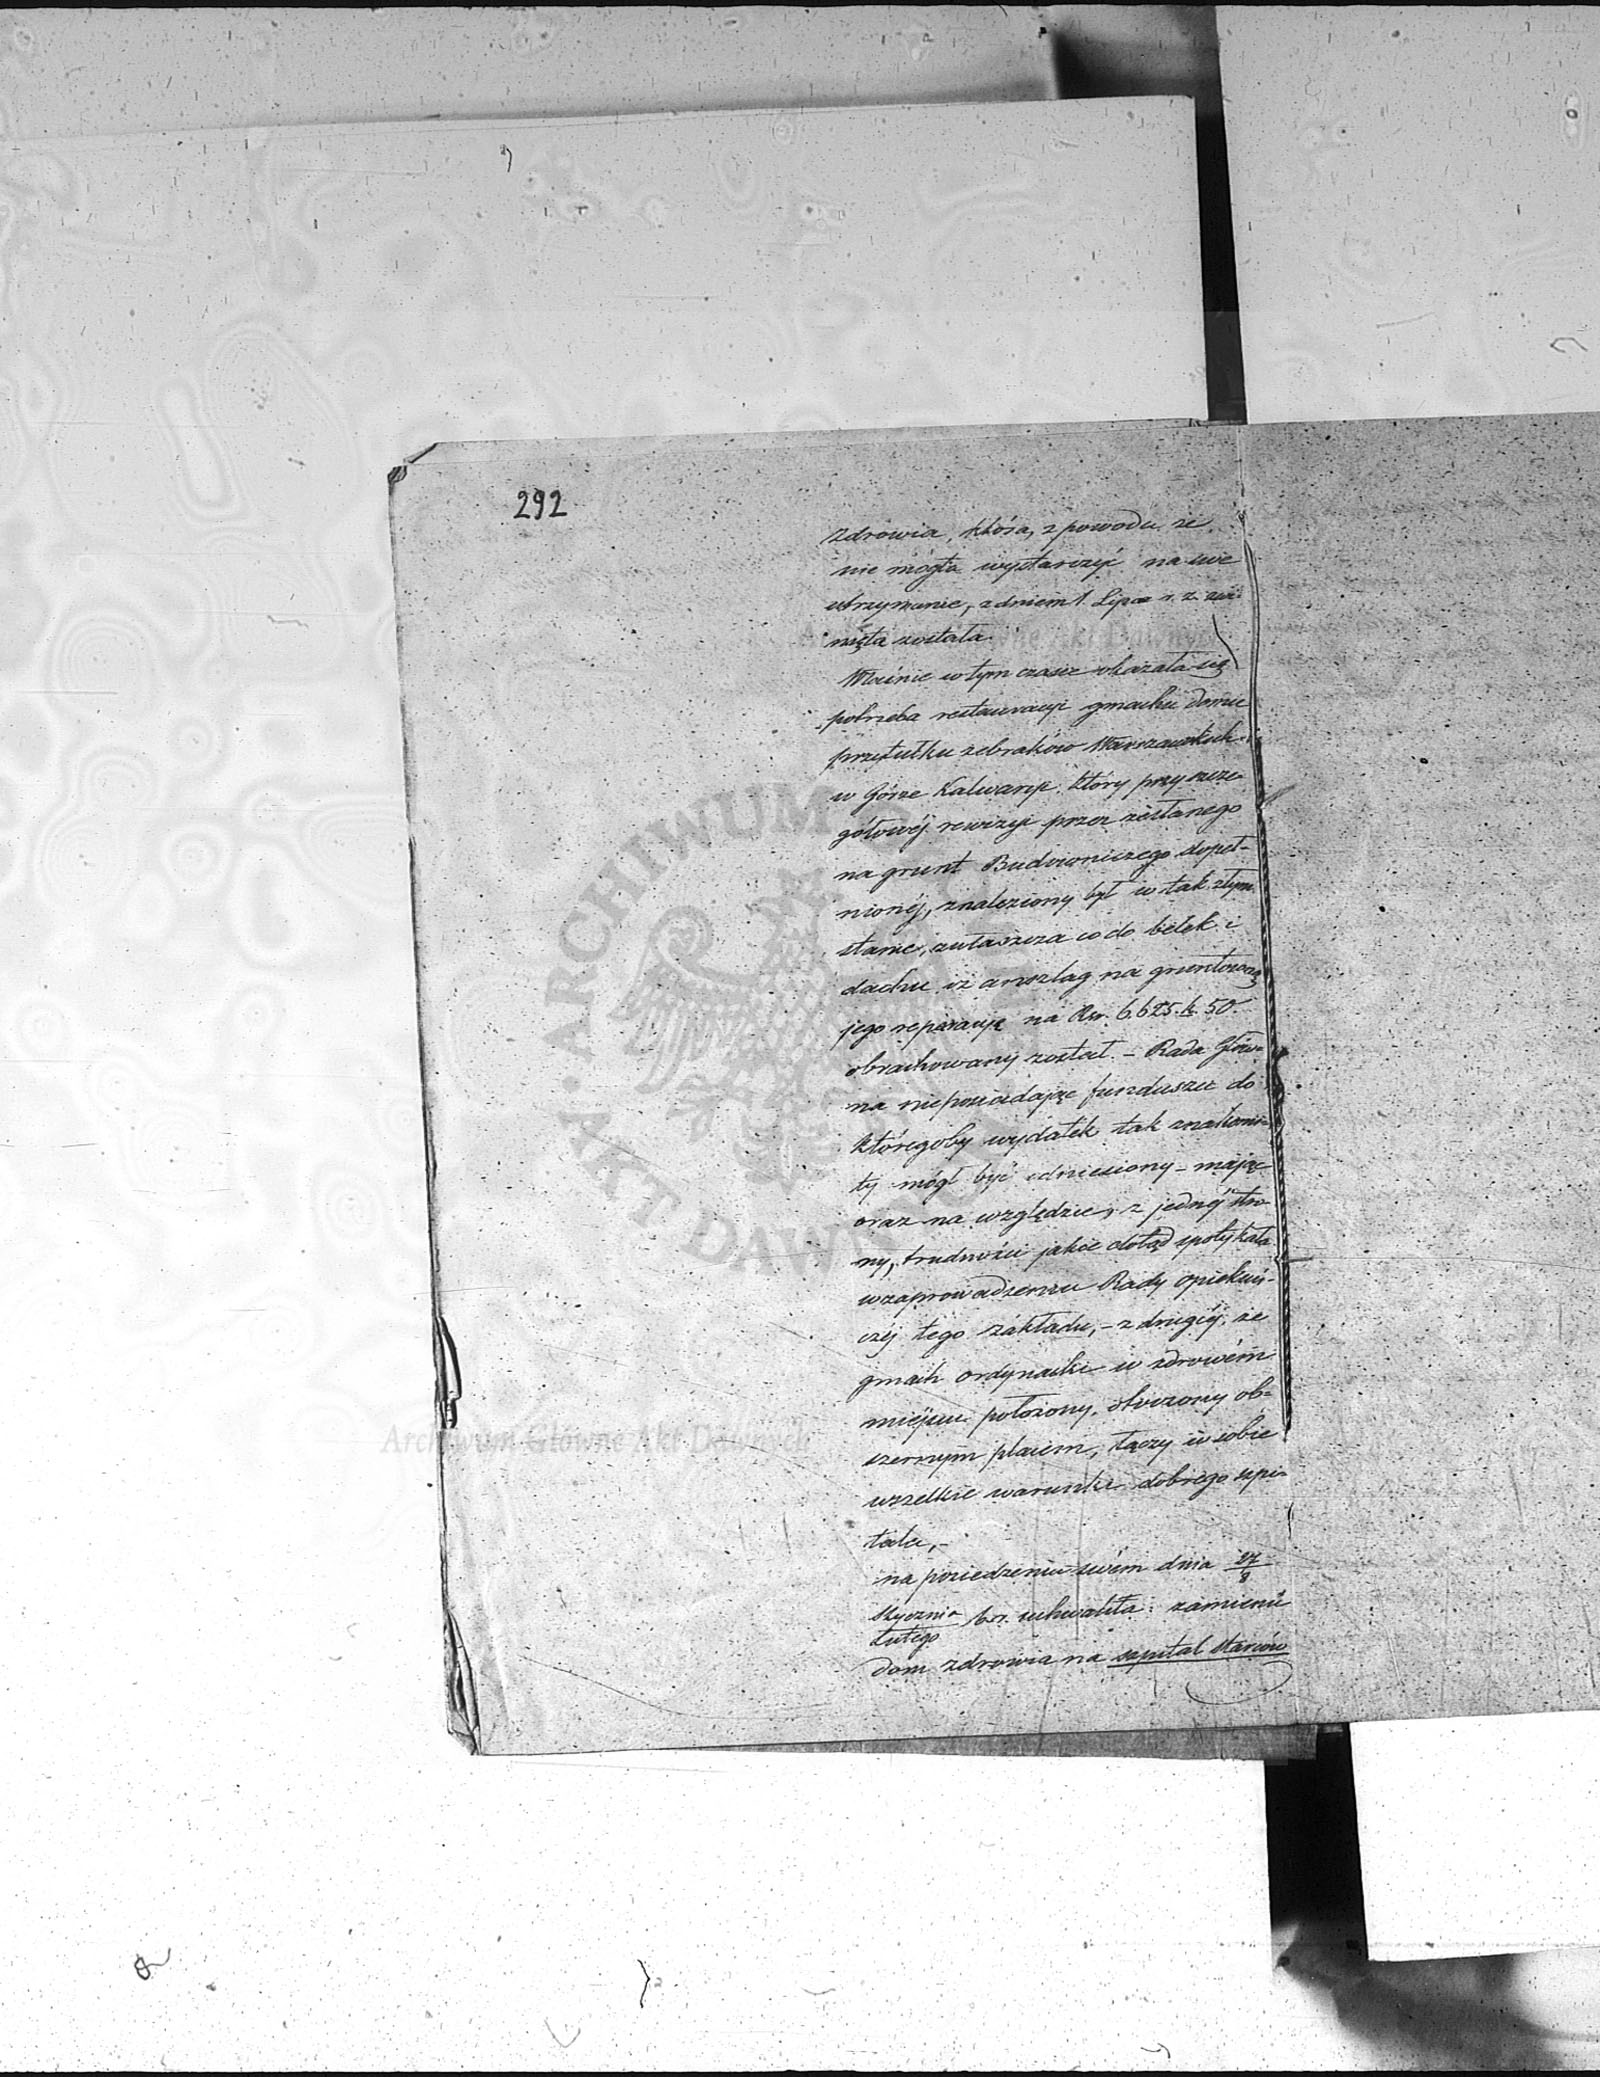 292
zdrowia, która, z powodu że
nie mogła wystarczyć na swe
utrzymanie, z dniem 1 Lipca r. z. zwi-
niętą została.
Właśnie w tym czasie okazała się
potrzeba restauracyi gmachu domu
przytułku żebraków Warszawskich
w Górze Kalwaryi, który przy szcze-
gółowéj rewizyi przez zesłanego
na grunt Budowniczego dopeł-
nionéj, znaleziony był w tak złym
stanie, zwłaszcza co do belek i
dachu iż anszlag na gruntowną
jego reparacyę na Rsr. 6,625. k. 50
obrachowany został. – Rada Głów-
na nieposiadając funduszu do
któregoby wydatek tak znakomi-
ty mógł być odniesiony – mając
oraz na względzie, z jednéj stro-
ny, trudności jakie dotąd spotykała
w zaprowadzeniu Rady Opiekuń-
czéj tego zakładu, – z drugiéj, że
gmach ordynacki w zdrowém
miejscu położony, otoczony ob-
szernym placem, łączy w sobie
wszelkie warunki dobrego szpi-
tala, –
na posiedzeniu swém dnia 27/8
Stycznia/Lutego b. r. uchwaliła: zamienić
dom zdrowia na szpital starców
ARCHIWUM
AKT DAWN
Archiwum Główne Akt Dawnych